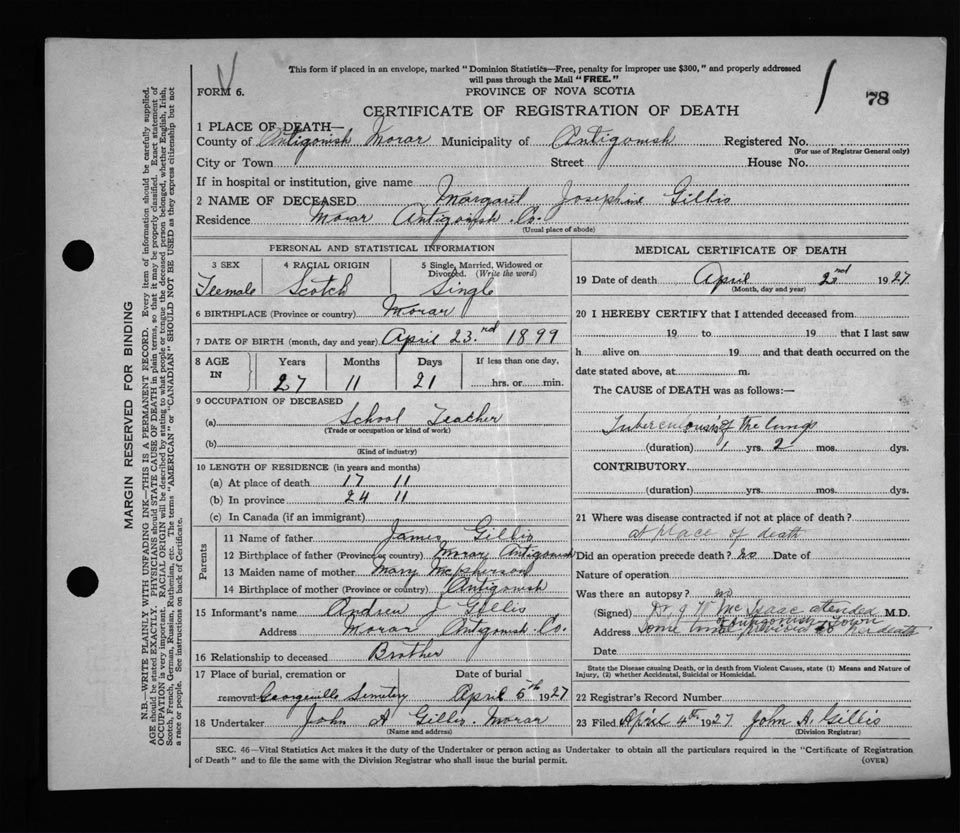 This form if placed in an envelope, marked "Dominion Statistics—Free, penalty for improper use $300," and properly addressed
will pass through the Mail "FREE."
FORM 6.
PROVINCE OF NOVA SCOTIA
78
CERTIFICATE OF REGISTRATION OF DEATH
1 PLACE OF DEATH—
County of Antigonish Morar Municipality of Antigonish Registered No.
(For use of Registrar General only)
City or Town Street House No.
If in hospital or institution, give name
2 NAME OF DECEASED Margaret Josephine Gillis
Residence Morar Antigonish Co.
(Usual place of abode)
PERSONAL AND STATISTICAL INFORMATION
3 SEX 4 RACIAL ORIGIN 5 Single, Married, Widowed or
Divorced. (Write the word)
Feemale Scotch Single
6 BIRTHPLACE (Province or country) Morar
7 DATE OF BIRTH (month, day and year) April 23.rd 1899
8 AGE IN Years Months Days If less than one day,
27 11 21 hrs. or min.
9 OCCUPATION OF DECEASED
(a) School Teacher
(Trade or occupation or kind of work)
(b)
(Kind of industry)
10 LENGTH OF RESIDENCE (in years and months)
(a) At place of death 17 11
(b) In province 24 11
(c) In Canada (if an immigrant)
Parents
11 Name of father James Gillis
12 Birthplace of father (Province or country) Morar Antigonish
13 Maiden name of mother Mary McPherson
14 Birthplace of mother (Province or country) Antigonish
15 Informant's name Andrew J Gillis
Address Morar Antigonish Co.
16 Relationship to deceased Brother
17 Place of burial, cremation or Date of burial
removal Georgeville Semetery April 5th 1927
18 Undertaker John A Gillis Morar
(Name and address)
MEDICAL CERTIFICATE OF DEATH
19 Date of death April 2nd 1927
(Month, day and year)
20 I HEREBY CERTIFY that I attended deceased from
19 to 19 that I last saw
h alive on 19 and that death occurred on the
date stated above, at m.
The CAUSE of DEATH was as follows:—
Tuberculousis of the lungs
(duration) 1 yrs. 2 mos. dys.
CONTRIBUTORY.
(duration) yrs. mos. dys.
21 Where was disease contracted if not at place of death?
at place of death
Did an operation precede death? no Date of
Nature of operation
Was there an autopsy? no
(Signed) Dr J W McIsaac attended M.D.
of Antigonish Town
Address some time previous to her death
Date
State the Disease causing Death, or in death from Violent Causes, state (1) Means and Nature of
Injury, (2) whether Accidental, Suicidal or Homicidal.
22 Registrar's Record Number
23 Filed April 4th 1927 John A. Gillis
(Division Registrar)
SEC. 46—Vital Statistics Act makes it the duty of the Undertaker or person acting as Undertaker to obtain all the particulars required in the "Certificate of Registration
of Death" and to file the same with the Division Registrar who shall issue the burial permit.
(OVER)
MARGIN RESERVED FOR BINDING
N.B.—WRITE PLAINLY WITH UNFADING INK—THIS IS A PERMANENT RECORD. Every item of information should be carefully supplied.
AGE should be stated EXACTLY. PHYSICIANS should STATE CAUSE OF DEATH in plain terms, so that it may be properly classified. Exact statement of
OCCUPATION is very important. RACIAL ORIGIN will be described by stating to what people or tongue the deceased person belonged, whether English, Irish,
Scotch, French, German, Russian, Ruthenian, etc. The terms "AMERICAN" or "CANADIAN" SHOULD NOT BE USED as they express citizenship but not
a race or people. See instructions on back of Certificate.